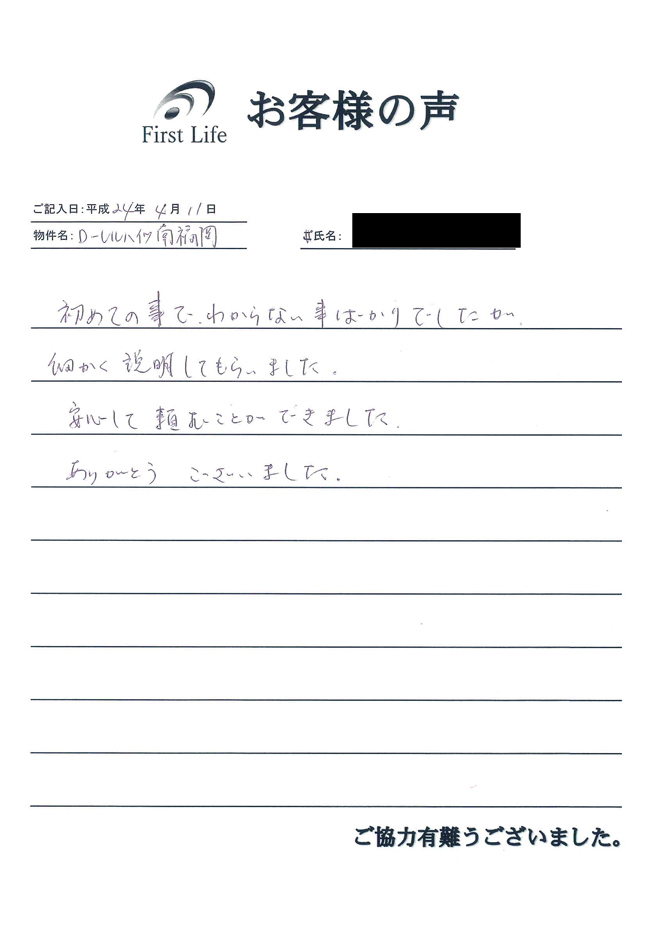 First Life
お客様の声
ご記入日：平成24年 4月 11日
物件名：ローレルハイツ南福岡
氏名：
初めての事で、わからない事ばかりでしたが、
細かく説明してもらいました。
安心して頼むことができました。
ありがとう ございました。
ご協力有難うございました。